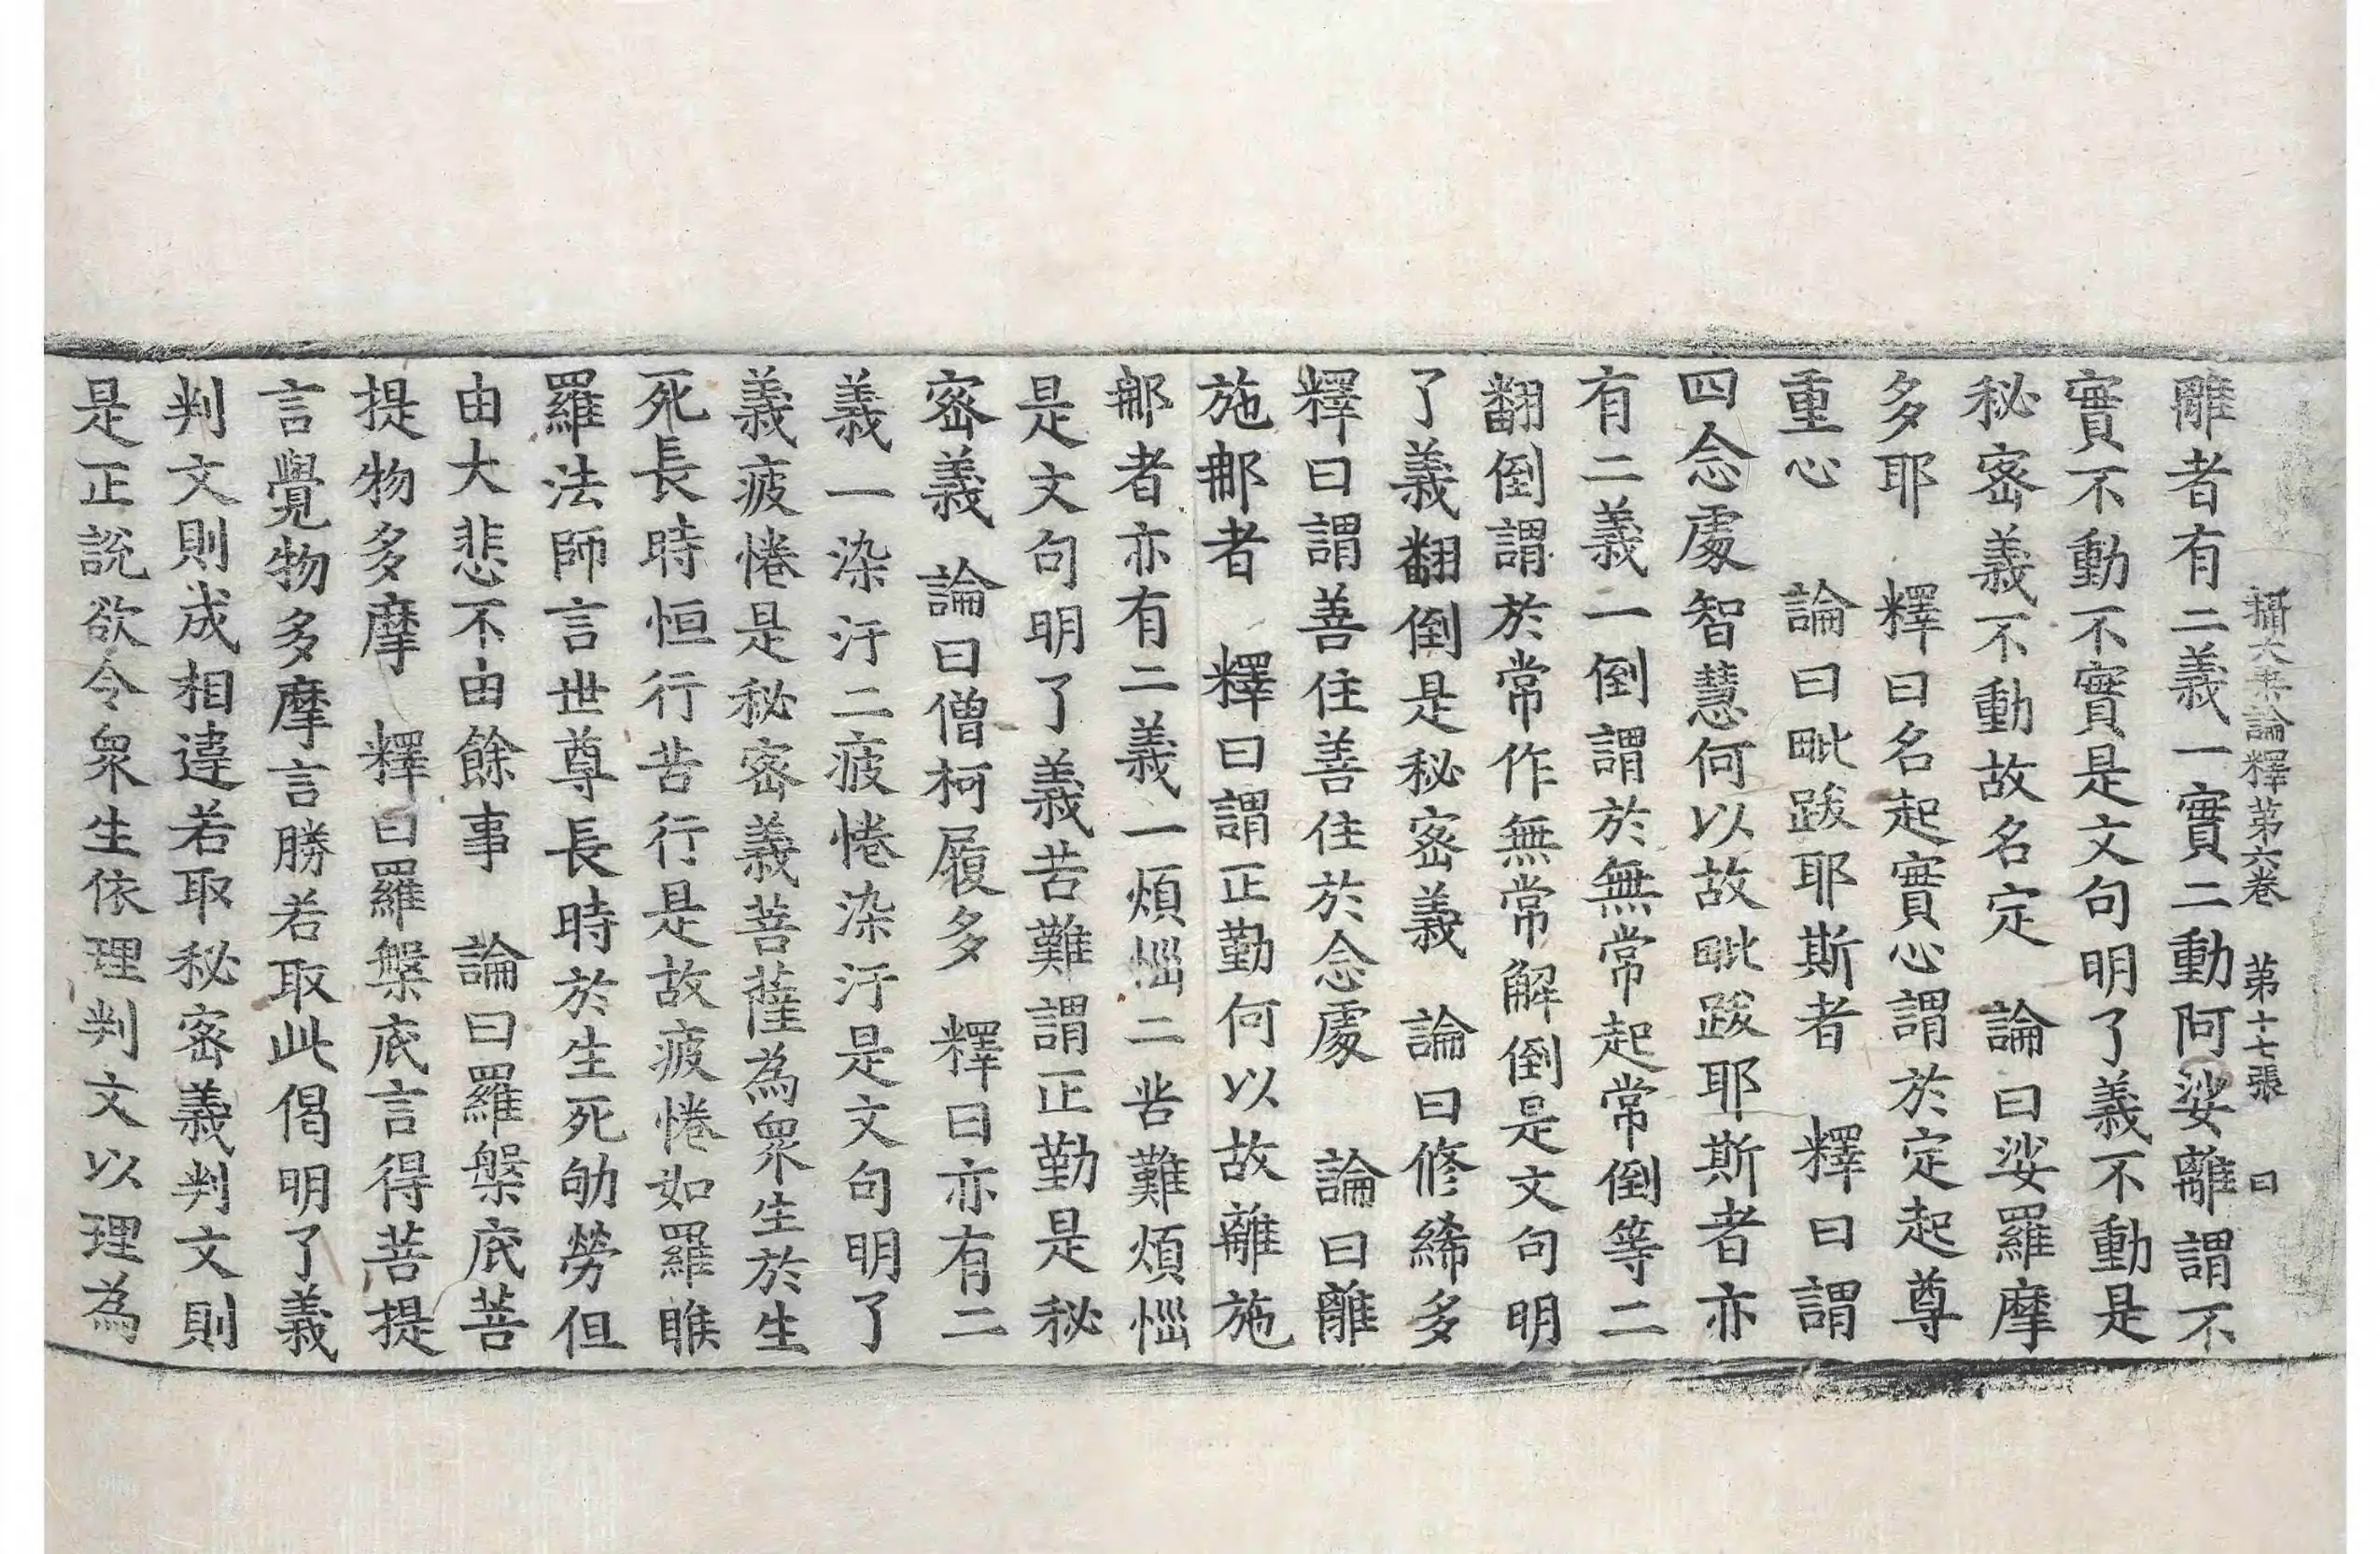 攝大乘論釋第六卷　第十七張　曰
離者有二義一實二動阿娑離謂不
實不動不實是文句明了義不動是
秘密義不動故名定　論曰娑羅摩
多耶　釋曰名起實心謂於定起尊
重心　論曰毗跋耶斯者　釋曰謂
四念處智慧何以故毗跋耶斯者亦
有二義一倒謂於無常起常倒等二
翻倒謂於常作無常解倒是文句明
了義翻倒是秘密義　論曰修絺多
釋曰謂善住善住於念處　論曰離
施那者　釋曰謂正勤何以故離施
那者亦有二義一煩惱二苦難煩惱
是文句明了義苦難謂正勤是秘
密義　論曰僧柯履多　釋曰亦有二
義一染汙二疲惓染汙是文句明了
義疲惓是秘密義菩薩為衆生於生
死長時恒行苦行是故疲惓如羅睺
羅法師言世尊長時於生死劬勞但
由大悲不由餘事　論曰羅槃底菩
提物多摩　釋曰羅槃底言得菩提
言覺物多摩言勝若取此偈明了義
判文則成相違若取秘密義判文則
是正說欲令衆生依理判文以理為